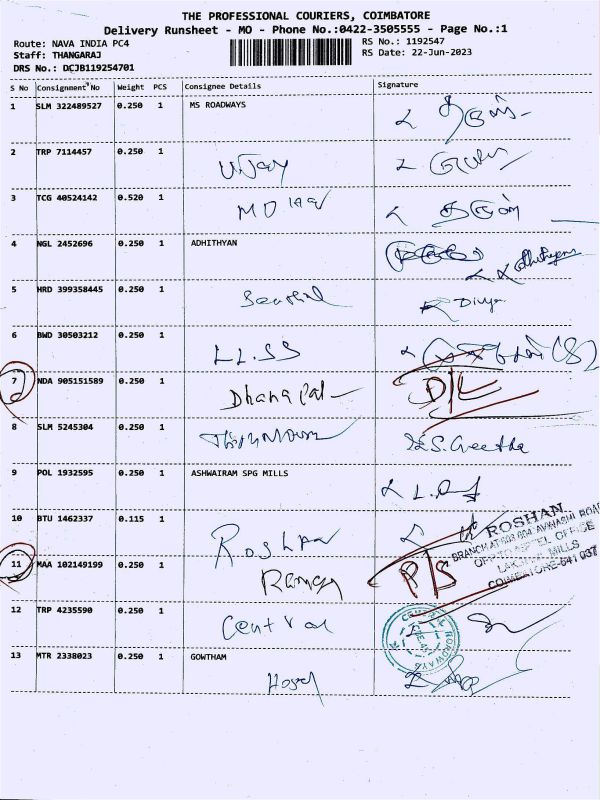 THE PROFESSIONAL COURIERS, COIMBATORE
Delivery Runsheet - MO - Phone No.:0422-3505555 - Page No.:1
Route: NAVA INDIA PC4 RS No.: 1192547
Staff: THANGARAJ RS Date: 22-Jun-2023
DRS No.: DCJB119254701
S No Consignment No Weight PCS Consignee Details Signature
1 SLM 322489527 0.250 1 MS ROADWAYS
2 TRP 7114457 0.250 1 Vijay
3 TCG 40524142 0.520 1 MD
4 NGL 2452696 0.250 1 ADHITHYAN
5 HRD 399358445 0.250 1 Senthil Divya
6 BWD 30503212 0.250 1 LL.SS
7 NDA 905151589 0.250 1 Dhanapal D/L
8 SLM 5245304 0.250 1 S.Geetha
9 POL 1932595 0.250 1 ASHWAIRAM SPG MILLS
10 BTU 1462337 0.115 1 Roshan
ROSHAN
BRANCH AT 603 604 AVINASHI ROAD
LAKSHMI MILLS
COIMBATORE-641 037
11 MAA 102149199 0.250 1 Raman P/S
12 TRP 4235590 0.250 1 Central
CENTRAL ROADWAYS
13 MTR 2338023 0.250 1 GOWTHAM